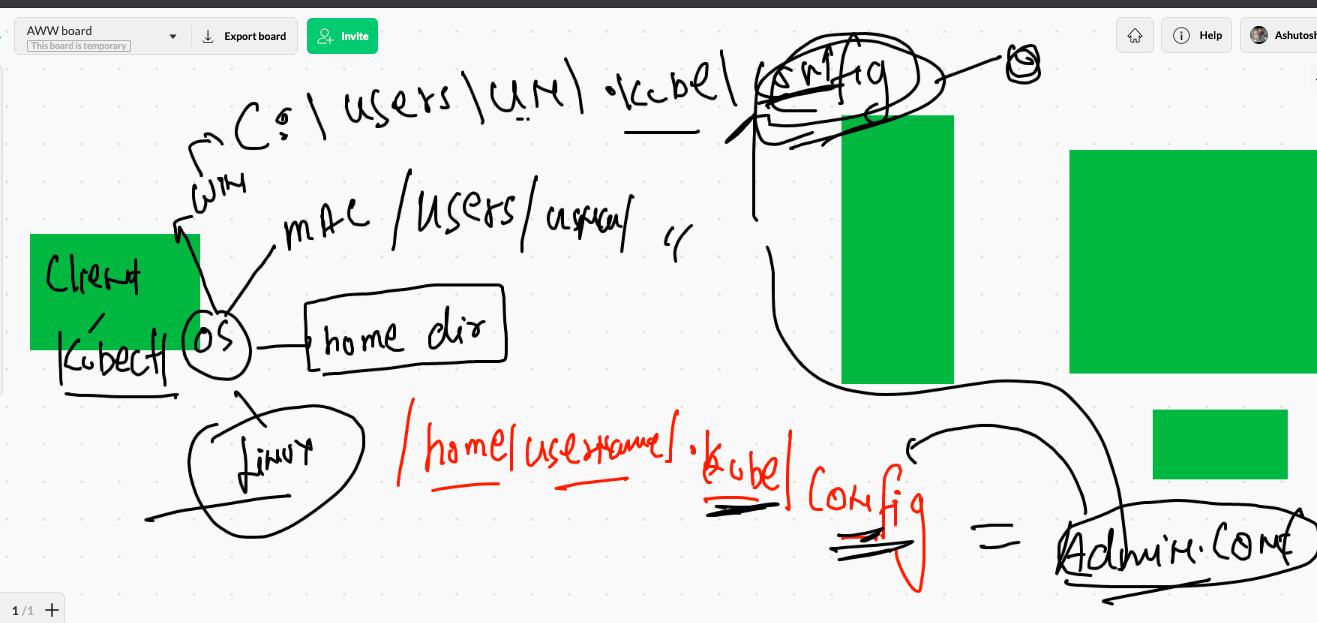 AWW board
This board is temporary
Export board
Invite
Help
Ashutosh
C:\users\UN\.kube\config
WIN
MAC /users/ "
Client
Kubectl
OS
home dir
Linux
/home/username/.kube/config = Admin.conf
1/1